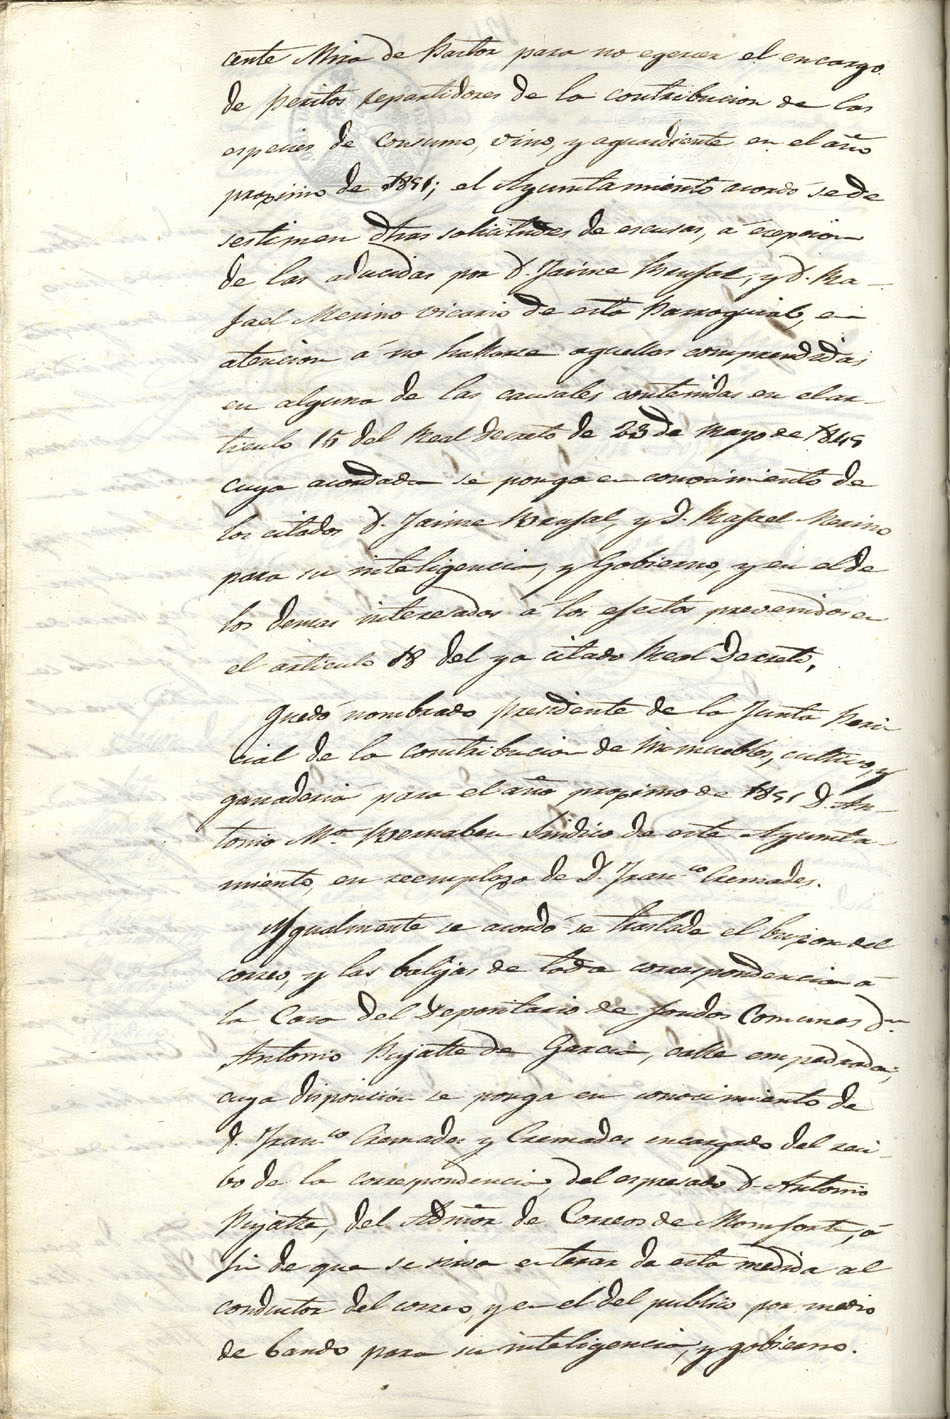 cente Mira de Pastor para no egercer el encargo
de peritos repartidores de la contribucion de las
especies de consumo, vino, y aguardiente en el año
proximo de 1851; el Ayuntamiento acordó se de
sestimen dhas solicitudes de escusas, á ecepcion
de las aducidas por D. Jaime Brufal, y D. Ra-
fael Merino Vicario de esta Parroquial, en
atencion á no hallarse aquellos comprendidas
en alguna de las causales contenidas en el ar-
ticulo 15 del Real decreto de 23 de Mayo de 1845
cuya acordada se ponga en conocimiento de
los citados D. Jaime Brufal, y D. Rafael Merino
para su inteligencia, y Gobierno, y en el de
los demas interesados a los efectos prevenidos en
el articulo 18 del ya citado Real Decreto.
Quedó nombrado presidente de la Junta Peri
cial de la contribucion de inmuebles, cultivo, y
ganaderia para el año proximo de 1851 D. An-
tonio Mª. Bernabeu Sindico de este Ayunta-
miento, en reemplazo de D. Franco Cremades.
Ygualmente se acordó se traslade el buzon del
correo, y las balijas de toda correspondencia á
la Casa del Depositario de fondos Comunes Dn
Antonio Pujalte de Garcia, calle empedrada;
cuya disposicion se ponga en conocimiento de
D. Franco Cremades y Cremades encargado del reci-
bo de la correspondencia, del espresado D. Antonio
Pujalte, del Admor de Correos de Monforte, á
fin de que se sirva enterar de esta medida al
conductor del correo, y en el del publico por medio
de bando para su inteligencia, y gobierno.